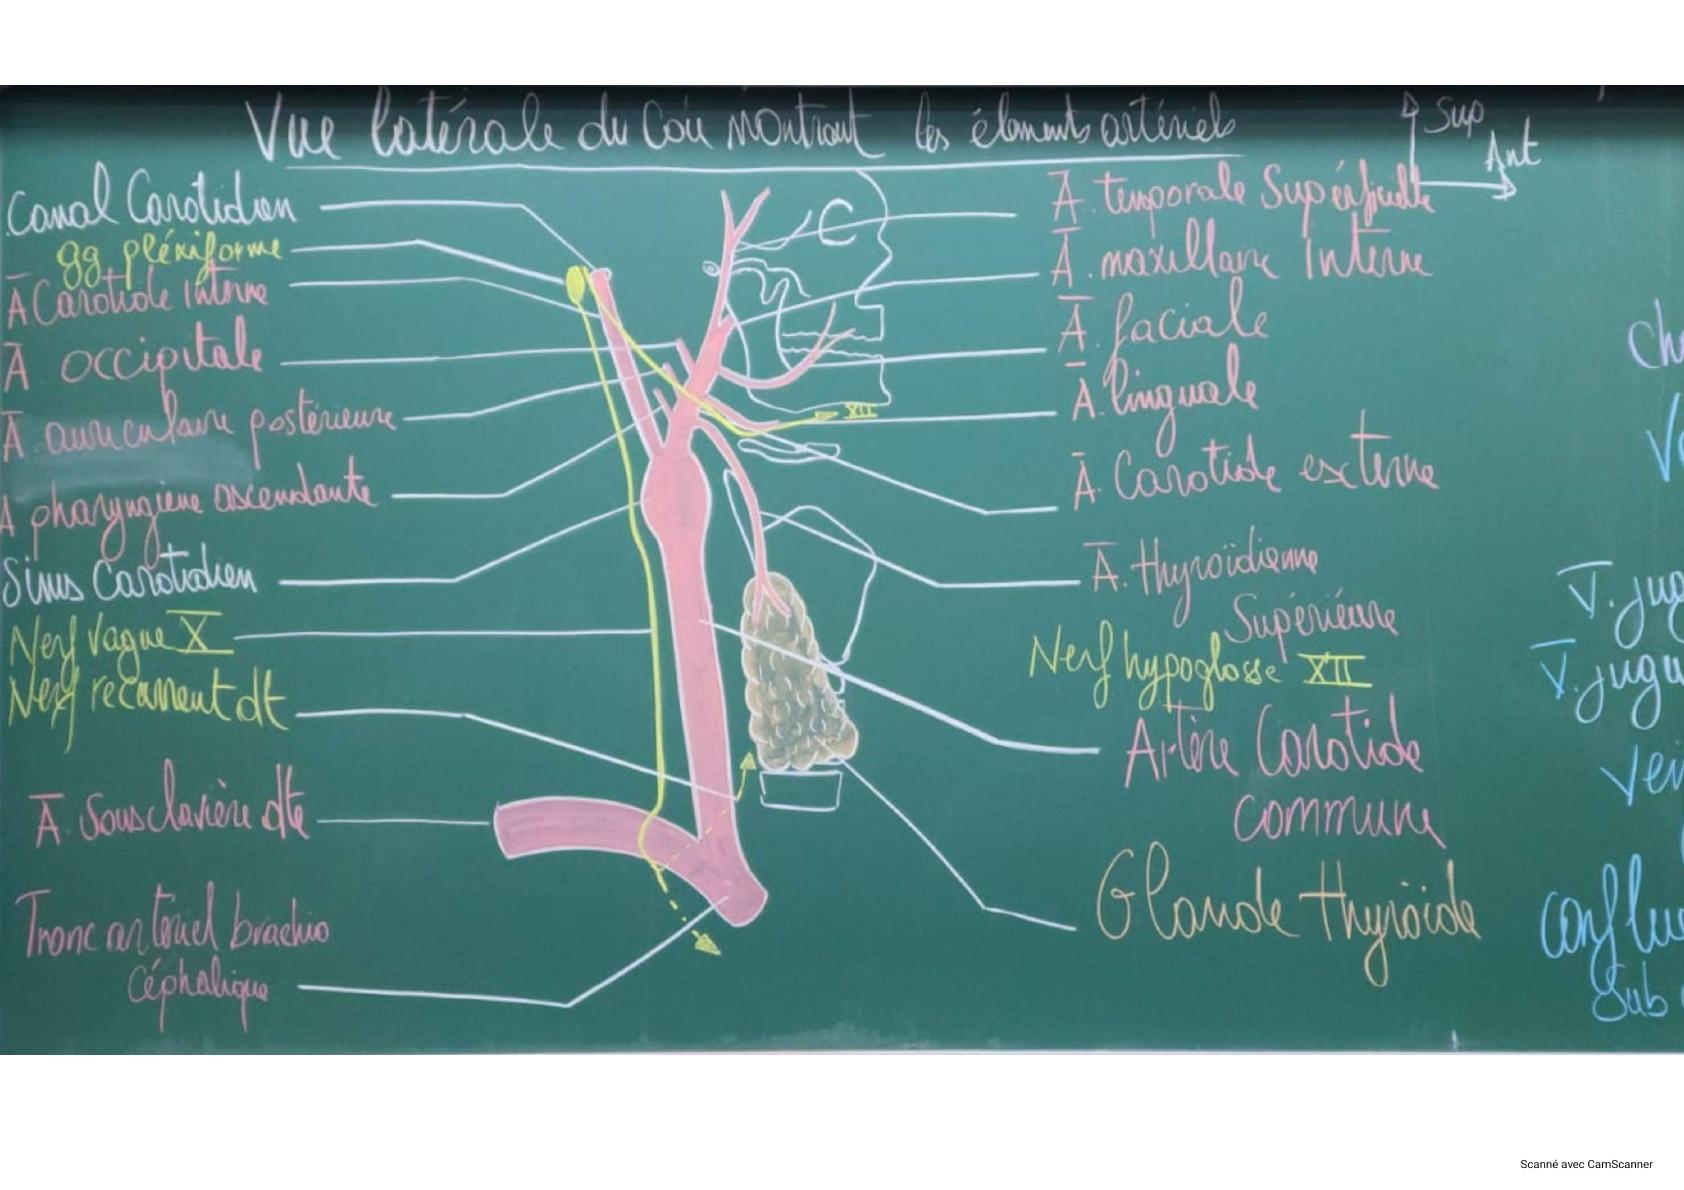 Vue latérale du Cou montrant les éléments artériels
Sup
Ant
Canal Carotidien
gg pléxiforme
A Carotide interne
A occipitale
A auriculaire postérieure
A pharyngiene ascendante
Sinus Carotidien
Nerf Vague X
Nerf recurrent dt
A. Sousclavière dte
Tronc artériel brachio
Céphalique
C
XII
A. temporale Superficielle
A. maxillaire Interne
A. faciale
A. linguale
A. Carotide externe
A. thyroïdienne
Supérieure
Nerf hypoglosse XII
Artère Carotide
Commune
Glande thyroïde
V. jug
V. jugu
Vei
conflue
Sub
Scanné avec CamScanner